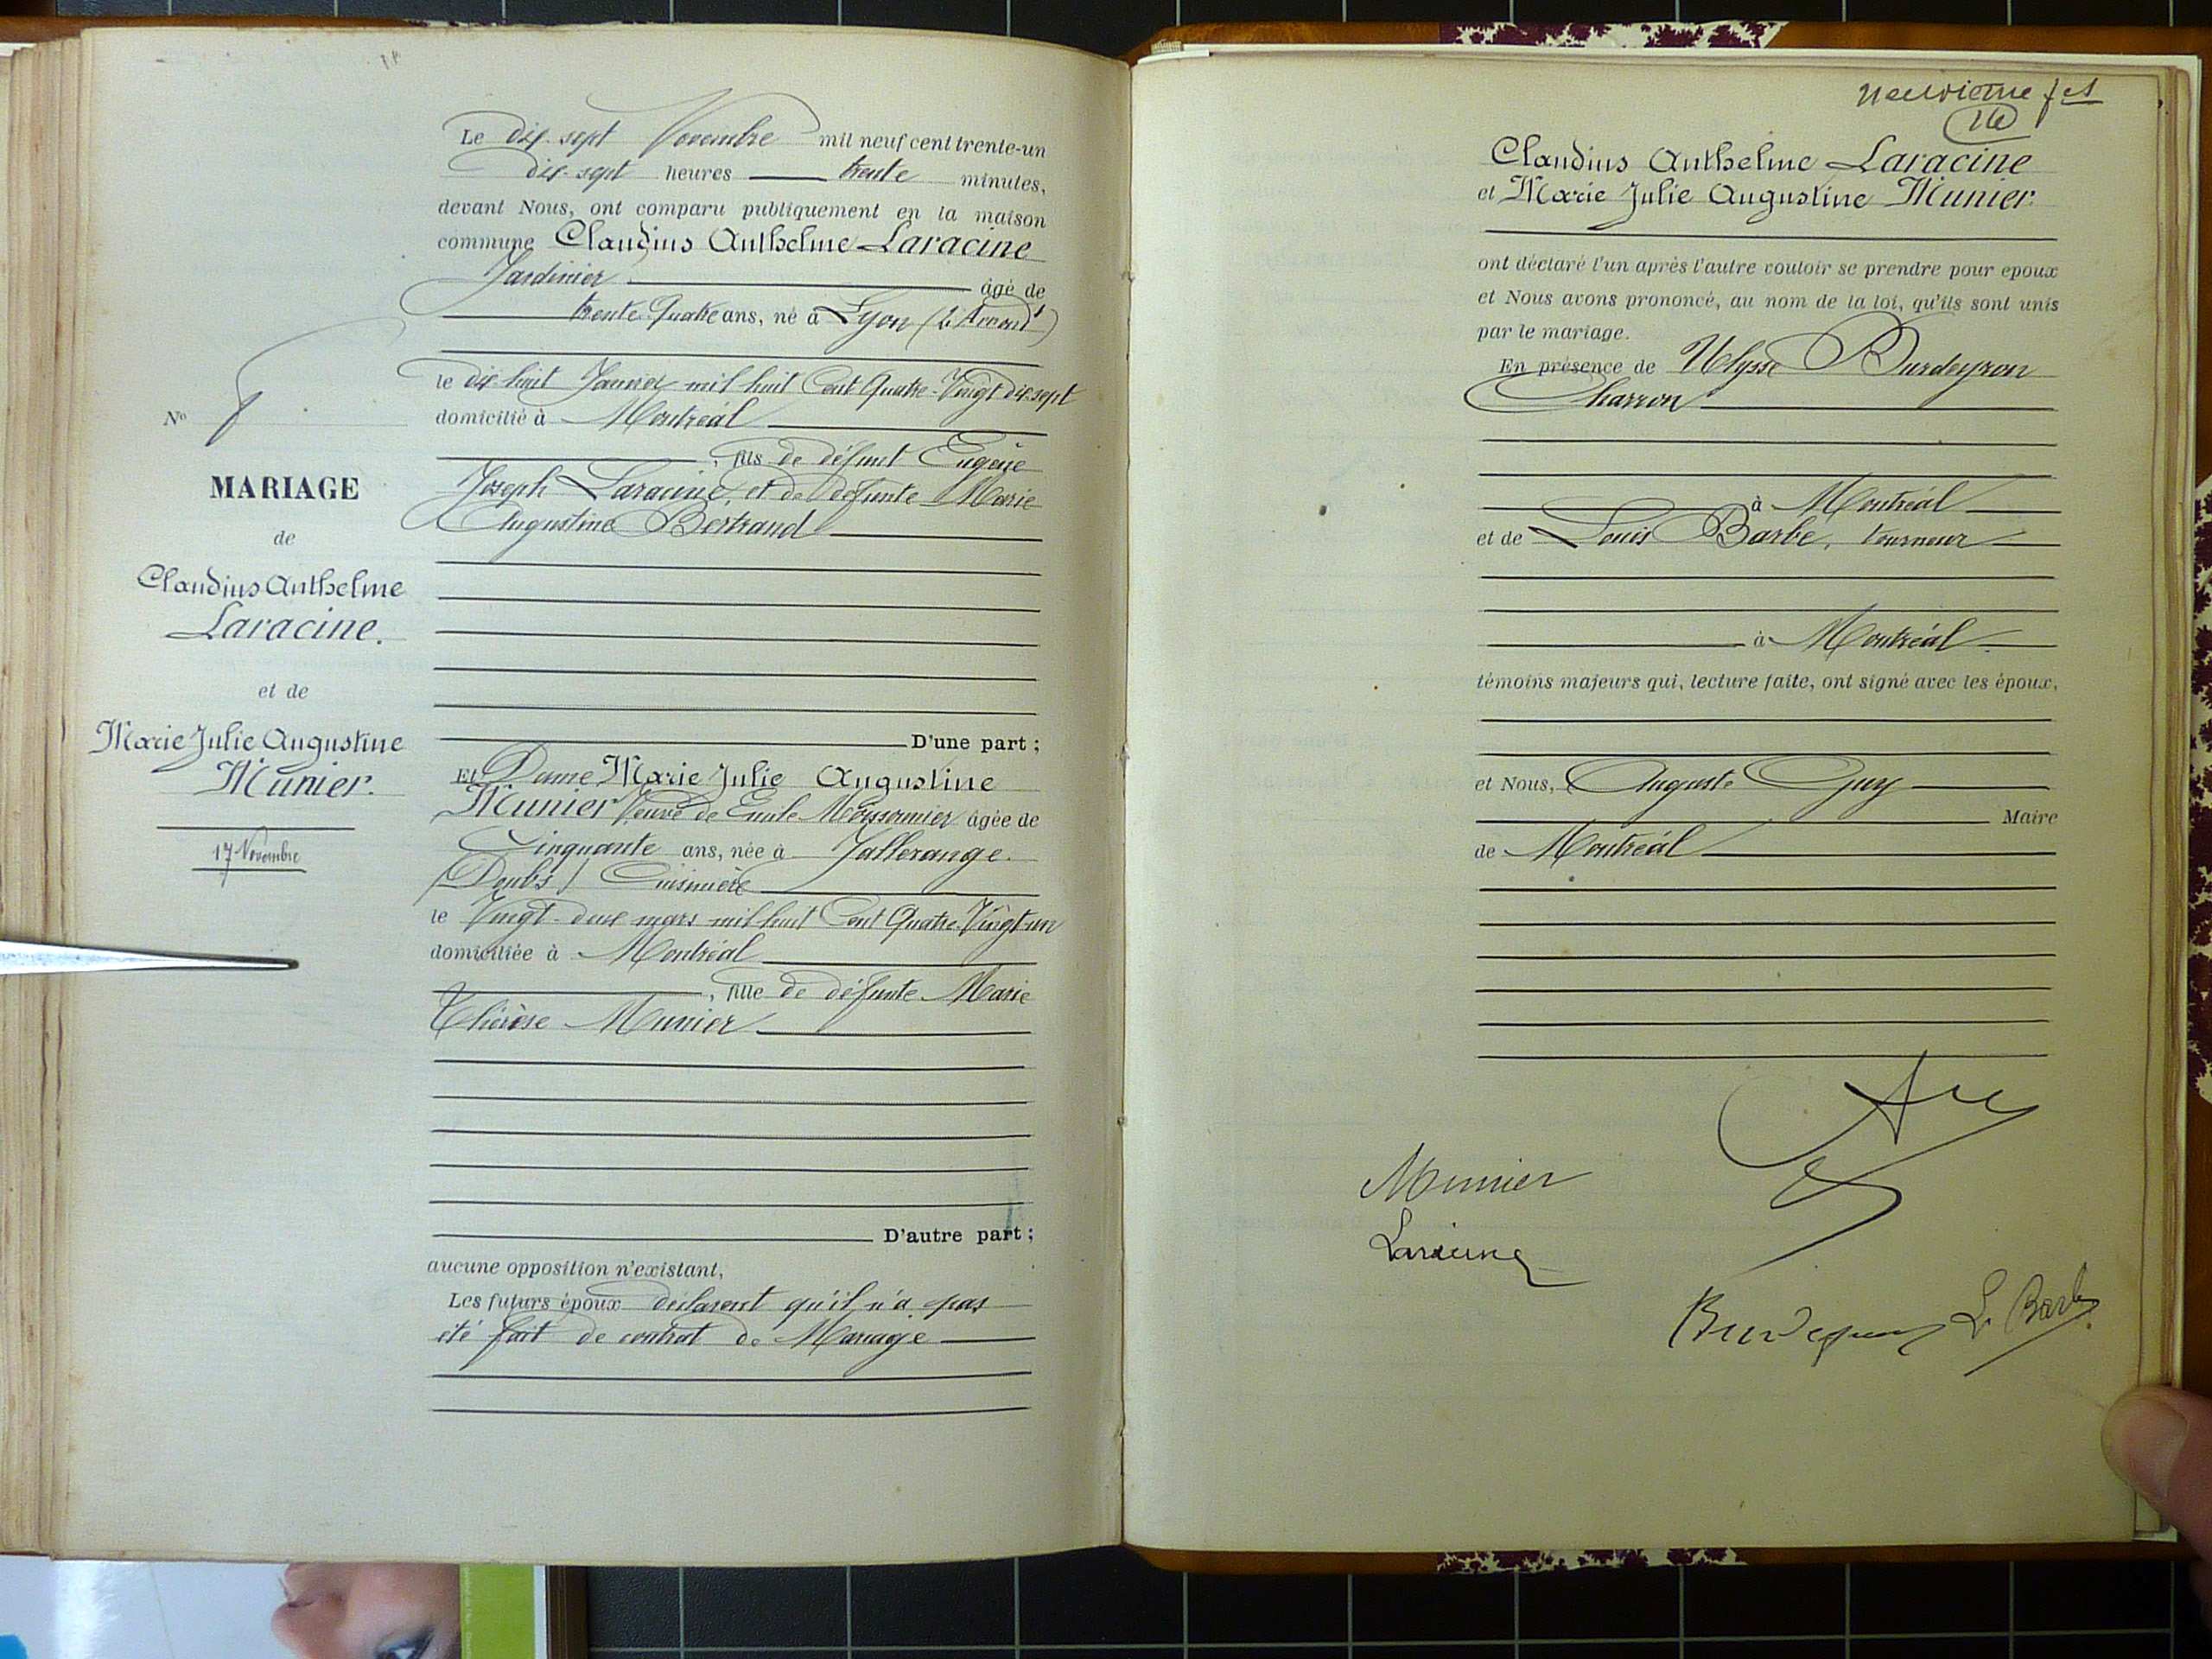 Le dix-sept Novembre mil neuf cent trente-un
dix-sept heures trente minutes,
devant Nous, ont comparu publiquement en la maison
commune Claudius Anthelme Laracine
Jardinier âgé de
trente-Quatre ans, né à Lyon (2e Arrondt)
le dix huit Janvier mil huit Cent Quatre-Vingt dix-sept
domicilié à Montréal
, fils de défunt Eugène
Joseph Laracine, et de défunte Marie
Augustine Bertrand
No 8
MARIAGE
de
Claudius Anthelme
Laracine.
et de
Marie Julie Augustine
Munier.
17 Novembre
D'une part ;
Et Dame Marie Julie Augustine
Munier Veuve de Emile Meissonnier âgée de
Cinquante ans, née à Jallerange.
(Doubs) Cuisinière
le Vingt-deux mars mil huit Cent Quatre-Vingt-un
domiciliée à Montréal
, fille de défunte Marie
Thérèse Munier
D'autre part ;
aucune opposition n'existant,
Les futurs époux declarent qu'il n'a pas
été fait de contrat de Mariage
neuvieme fet
Claudius Anthelme Laracine
et Marie Julie Augustine Munier.
ont déclaré l'un après l'autre vouloir se prendre pour epoux
et Nous avons prononcé, au nom de la loi, qu'ils sont unis
par le mariage.
En présence de Ulysse Burdeyron
Charron
à Montréal
et de Louis Barbe, tourneur
à Montréal
témoins majeurs qui, lecture faite, ont signé avec les époux,
et Nous, Auguste Guy
Maire
de Montréal
Munier
Laracine
Burdeyron L. Barbe